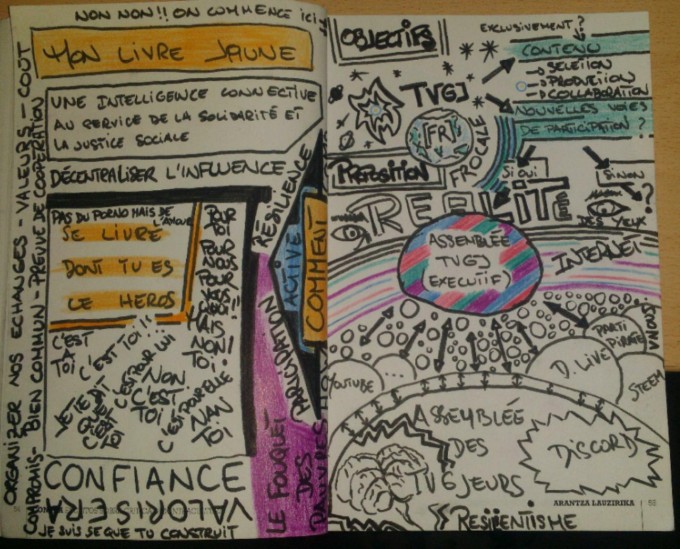 NON NON!! ON COMMENCE ici
MON LIVRE JAUNE
UNE INTELLIGENCE CONNECTIVE
AU SERVICE DE LA SOLIDARITÉ ET
LA JUSTICE SOCIALE
DÉCENTRALISER L'INFLUENCE
ORGANIZER NOS ECHANGES - VALEURS - COUT
COMPROMIS - BIEN COMMUN - PREUVE DE COOPÉRATION
PAS DU PORNO MAIS DE L'AMOUR
SE LIVRE
DONT TU ES
LE HEROS
C'EST
TOI
C'EST TOI!!
C'EST POUR LUI
NON
C'EST
TOI!
C'EST POUR ELLE
NAN
TOI
POUR
TOI
RÉSILIENCE
ACTIVE
COMMENT
PARTICIPATION
LE FOUQUET
DES
CONFIANCE
VALORISERA
JE SUIS SE QUE TU CONSTRUIT
OBJECTIFS
EXCLUSIVEMENT?
CONTENU
→ SELETION
→ PRODUTIION
→ COLLABORATION
NOUVELLES VOIES
DE PARTICIPATION?
TVGJ
FR
FROCALE
PROPOSITION
SI OUI
SINON
?
REALITÉ
DES YEUX
ASSEMBLÉE
TVGJ
(EXECUTIF)
INTERNET
PARTI
PIRATE
VAOUS
D. LIVE
STEEM
YOUTUBE
...
ASSEMBLÉE
DES
TVGJEURS
DISCORD
ARANTZA LAUZIRIKA | 55